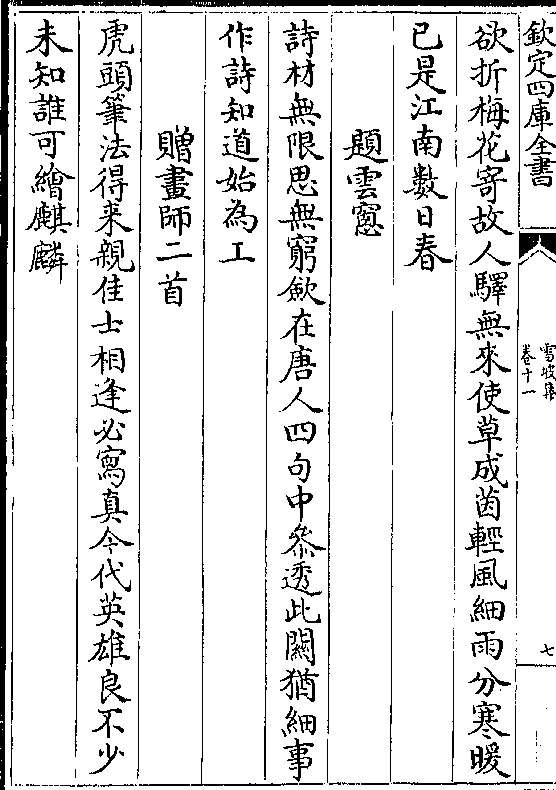 欽定四庫全書
雪坡集
卷十一
七
欲折梅花寄故人驛無來使草成茵輕風細雨分寒暖
已是江南數日春
題雲窻
詩材無限思無窮斂在唐人四句中叅透此關猶細事
作詩知道始為工
贈畫師二首
虎頭筆法得来親佳士相逢必寫真今代英雄良不少
未知誰可繪麒麟